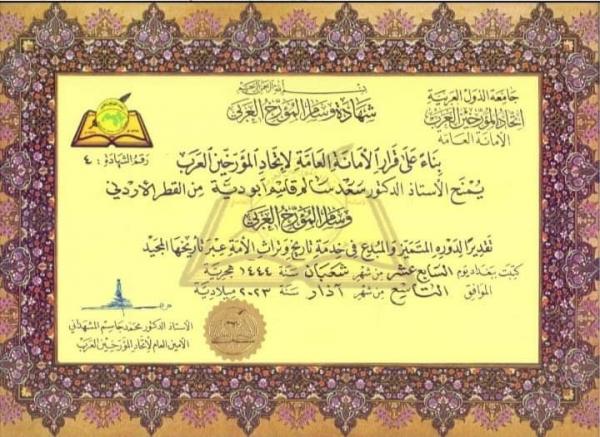 بسم الله الرحمن الرحيم
جامعة الدول العربية
إتحاد المؤرخين العرب
الأمانة العامة
شهادة وسام المؤرخ العربي
رقم الشهادة: ٤
بناءً على قرار الأمانة العامة لإتحاد المؤرخين العرب
يمنح الأستاذ الدكتور سعد سالم أبو دية من القطر الأردني
وسام المؤرخ العربي
تقديرا لدوره المتميز والمبدع في خدمة تاريخ وتراث الأمة عبر تأريخها المجيد
كتبت ببغداد يوم السابع عشر من شهر شعبان سنة ١٤٤٤ هجرية
الموافق التاسع من شهر آذار سنة ٢٠٢٣ ميلادية
الأستاذ الدكتور محمد جاسم المشهداني
الأمين العام لإتحاد المؤرخين العرب